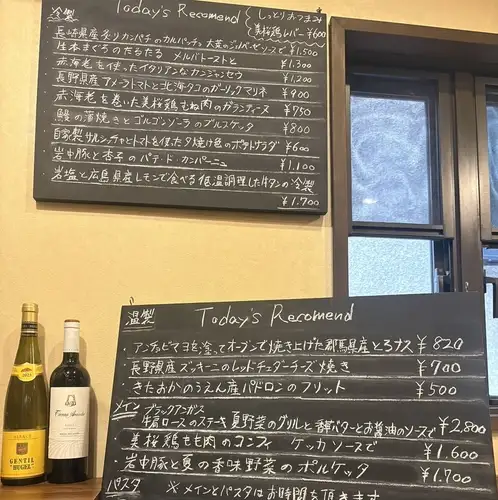 冷製 Today's Recomend
しっとりおつまみ
美桜鶏レバー ¥600
長崎県産炙りカンパチのカルパッチョ 大葉のジェノベーゼソースで ¥1,500
生本まぐろのたるたる メルバトーストと ¥1,300
赤海老を使ったイタリアンなカンジャンセウ ¥1,200
長野県産アメーラトマトと北海タコのガーリックマリネ ¥900
赤海老を巻いた美桜鶏むね肉のガランティーヌ ¥950
鰻の蒲焼きとゴルゴンゾーラのブルスケッタ ¥800
自家製サルシッチャとトマトを使った夕焼け色のポテトサラダ ¥600
岩中豚と杏子のパテ・ド・カンパーニュ ¥1,100
岩塩と広島県産レモンで食べる低温調理した牛タンの冷製
¥1,700
温製 Today's Recomend
・アンチョビでコクを塗ってオーブンで焼き上げた群馬県産とろナス ¥820
・長野県産ズッキーニのレッドチェダーチーズ焼き ¥700
・きたおかのうえん産パドロンのフリット ¥500
メイン ブラックアンガス
牛肩ロースのステーキ 夏野菜のグリルと 醤バターとお醤油のソースで ¥2,800
・美桜鶏もも肉のコンフィ ケッカソースで ¥1,600
・岩中豚と夏の香味野菜のポルケッタ ¥1,700
パスタ ※メインとパスタはお時間を頂きます
GENTIL
"HUGEL"